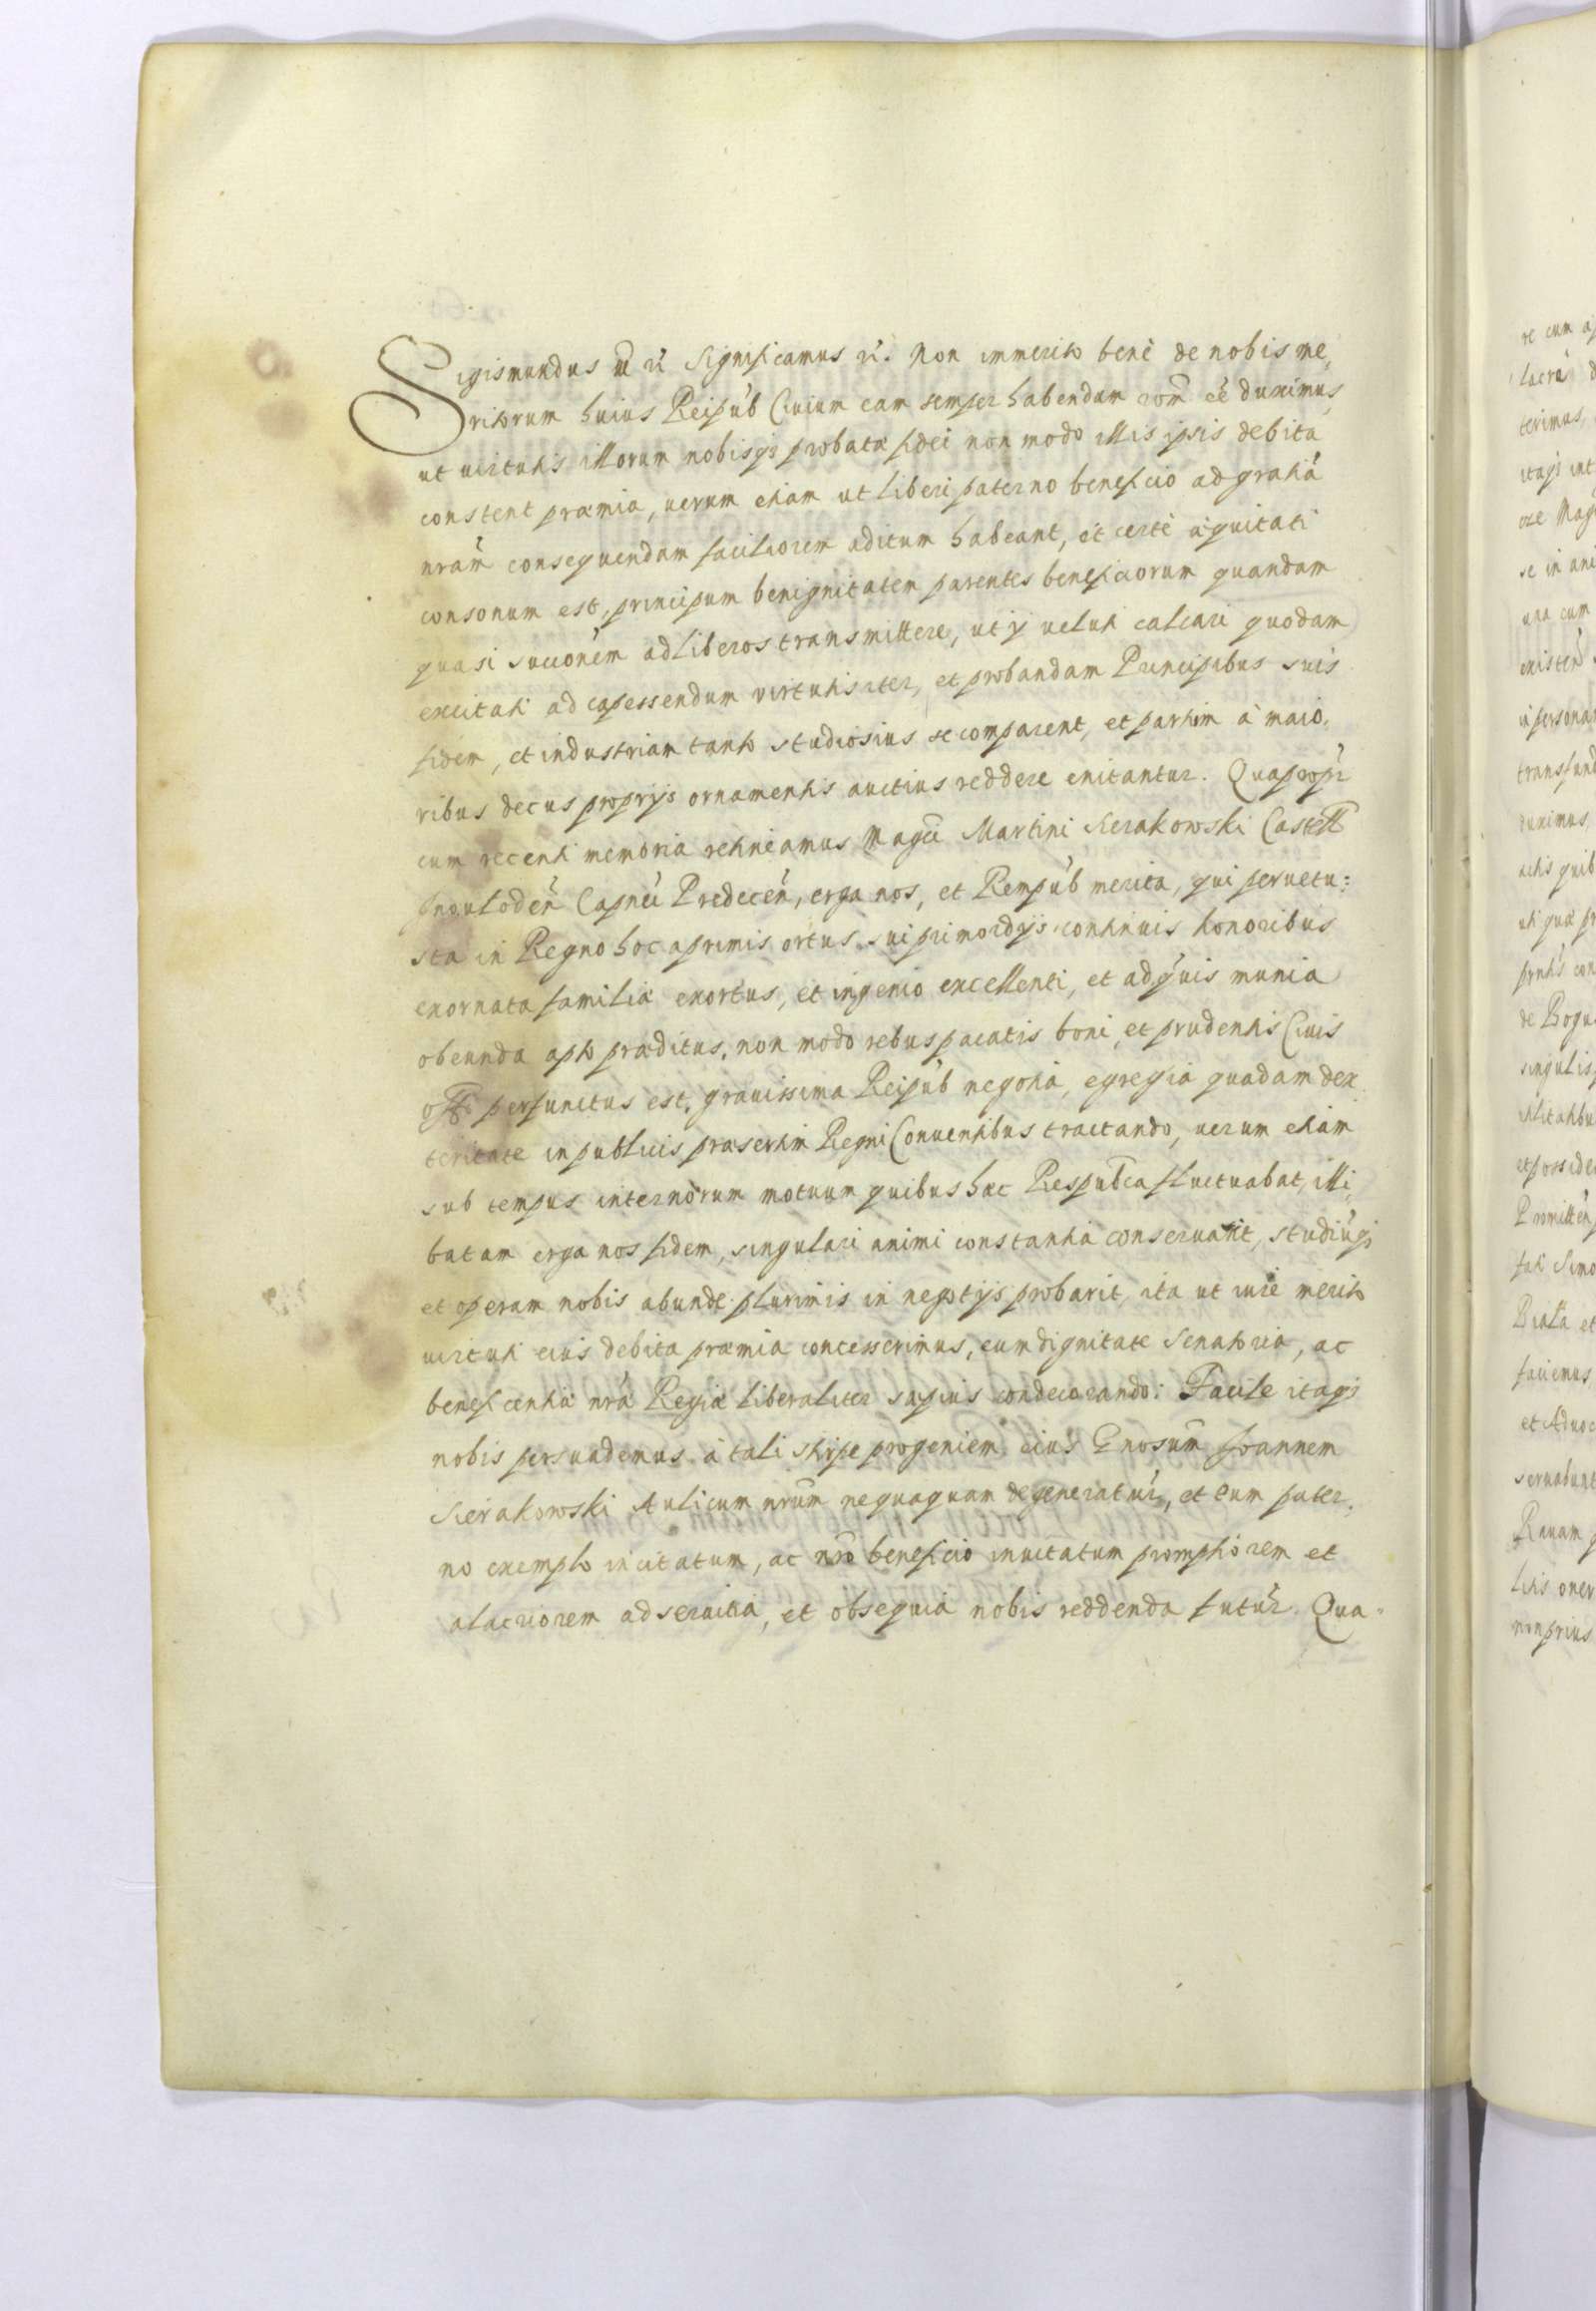 Sigismundus III etc Significamus etc. Non immerito benè de nobis me,
ritorum huius Reipúb Ciuium eam semper habendam roñm eẽ duximus,
ut uirtutis illorum nobisq; probatæ fidei non modo illis ipsis debita
constent præmia, uerum etiam ut liberi paterno beneficio ad gratiã
nrãm consequendam faciliorem aditum habeant, et certè æquitati
consonum est, principum benignitatem parentes beneficiorum quandam
quasi succiõnem ad liberos transmittere, ut ij ueluti calcari quodam
excitati ad capessendum virtutis iter, et probandam Principibus suis
fidem, et industriam tanto studiosius se comparent, et partum à maio,
ribus decus proprijs ornamentis auctius reddere enitantur. Quaproptr
cum recenti memoria retineamus Magci Martini Sierakowski Castell
Inoulodeñ Capnei Predeceñ, erga nos, et Rempúb merita, qui peruetu:
sta in Regno hoc a primis ortus sui primordijs continuis honoribus
exornata familia exortus, et ingenio excellenti, et ad quis munia
obeunda apto præditus, non modo rebus pacatis boni, et prudentis Ciuis
offo perfunctus est, grauissima Reipúb negotia, egregia quadam dex
teritate in publicis præsertim Regni Conuentibus tractando, uerum etiam
sub tempus internorum motuum quibus hæc Respubca fluctuabat, illi,
batam erga nos fidem, singulari animi constantia conseruarit, studiuq;
et operam nobis abunde plurimis in negotijs probarit, ita ut iure merito
uirtuti eius debita præmia concesserimus, eum dignitate Senatoria, ac
beneficentia nrã Regia liberaliter sæpius condecorando: Facile itaq;
nobis persuademus à tali stirpe progeniem eius Gnosum Joannem
Sierakowski Aulicum nrũm nequaquam degeneratur, et eum pater,
no exemplo incitatum, ac nrõ beneficio inuitatum promptiorem et
alacriorem ad seruitia, et obsequia nobis reddenda futúr. Qua-